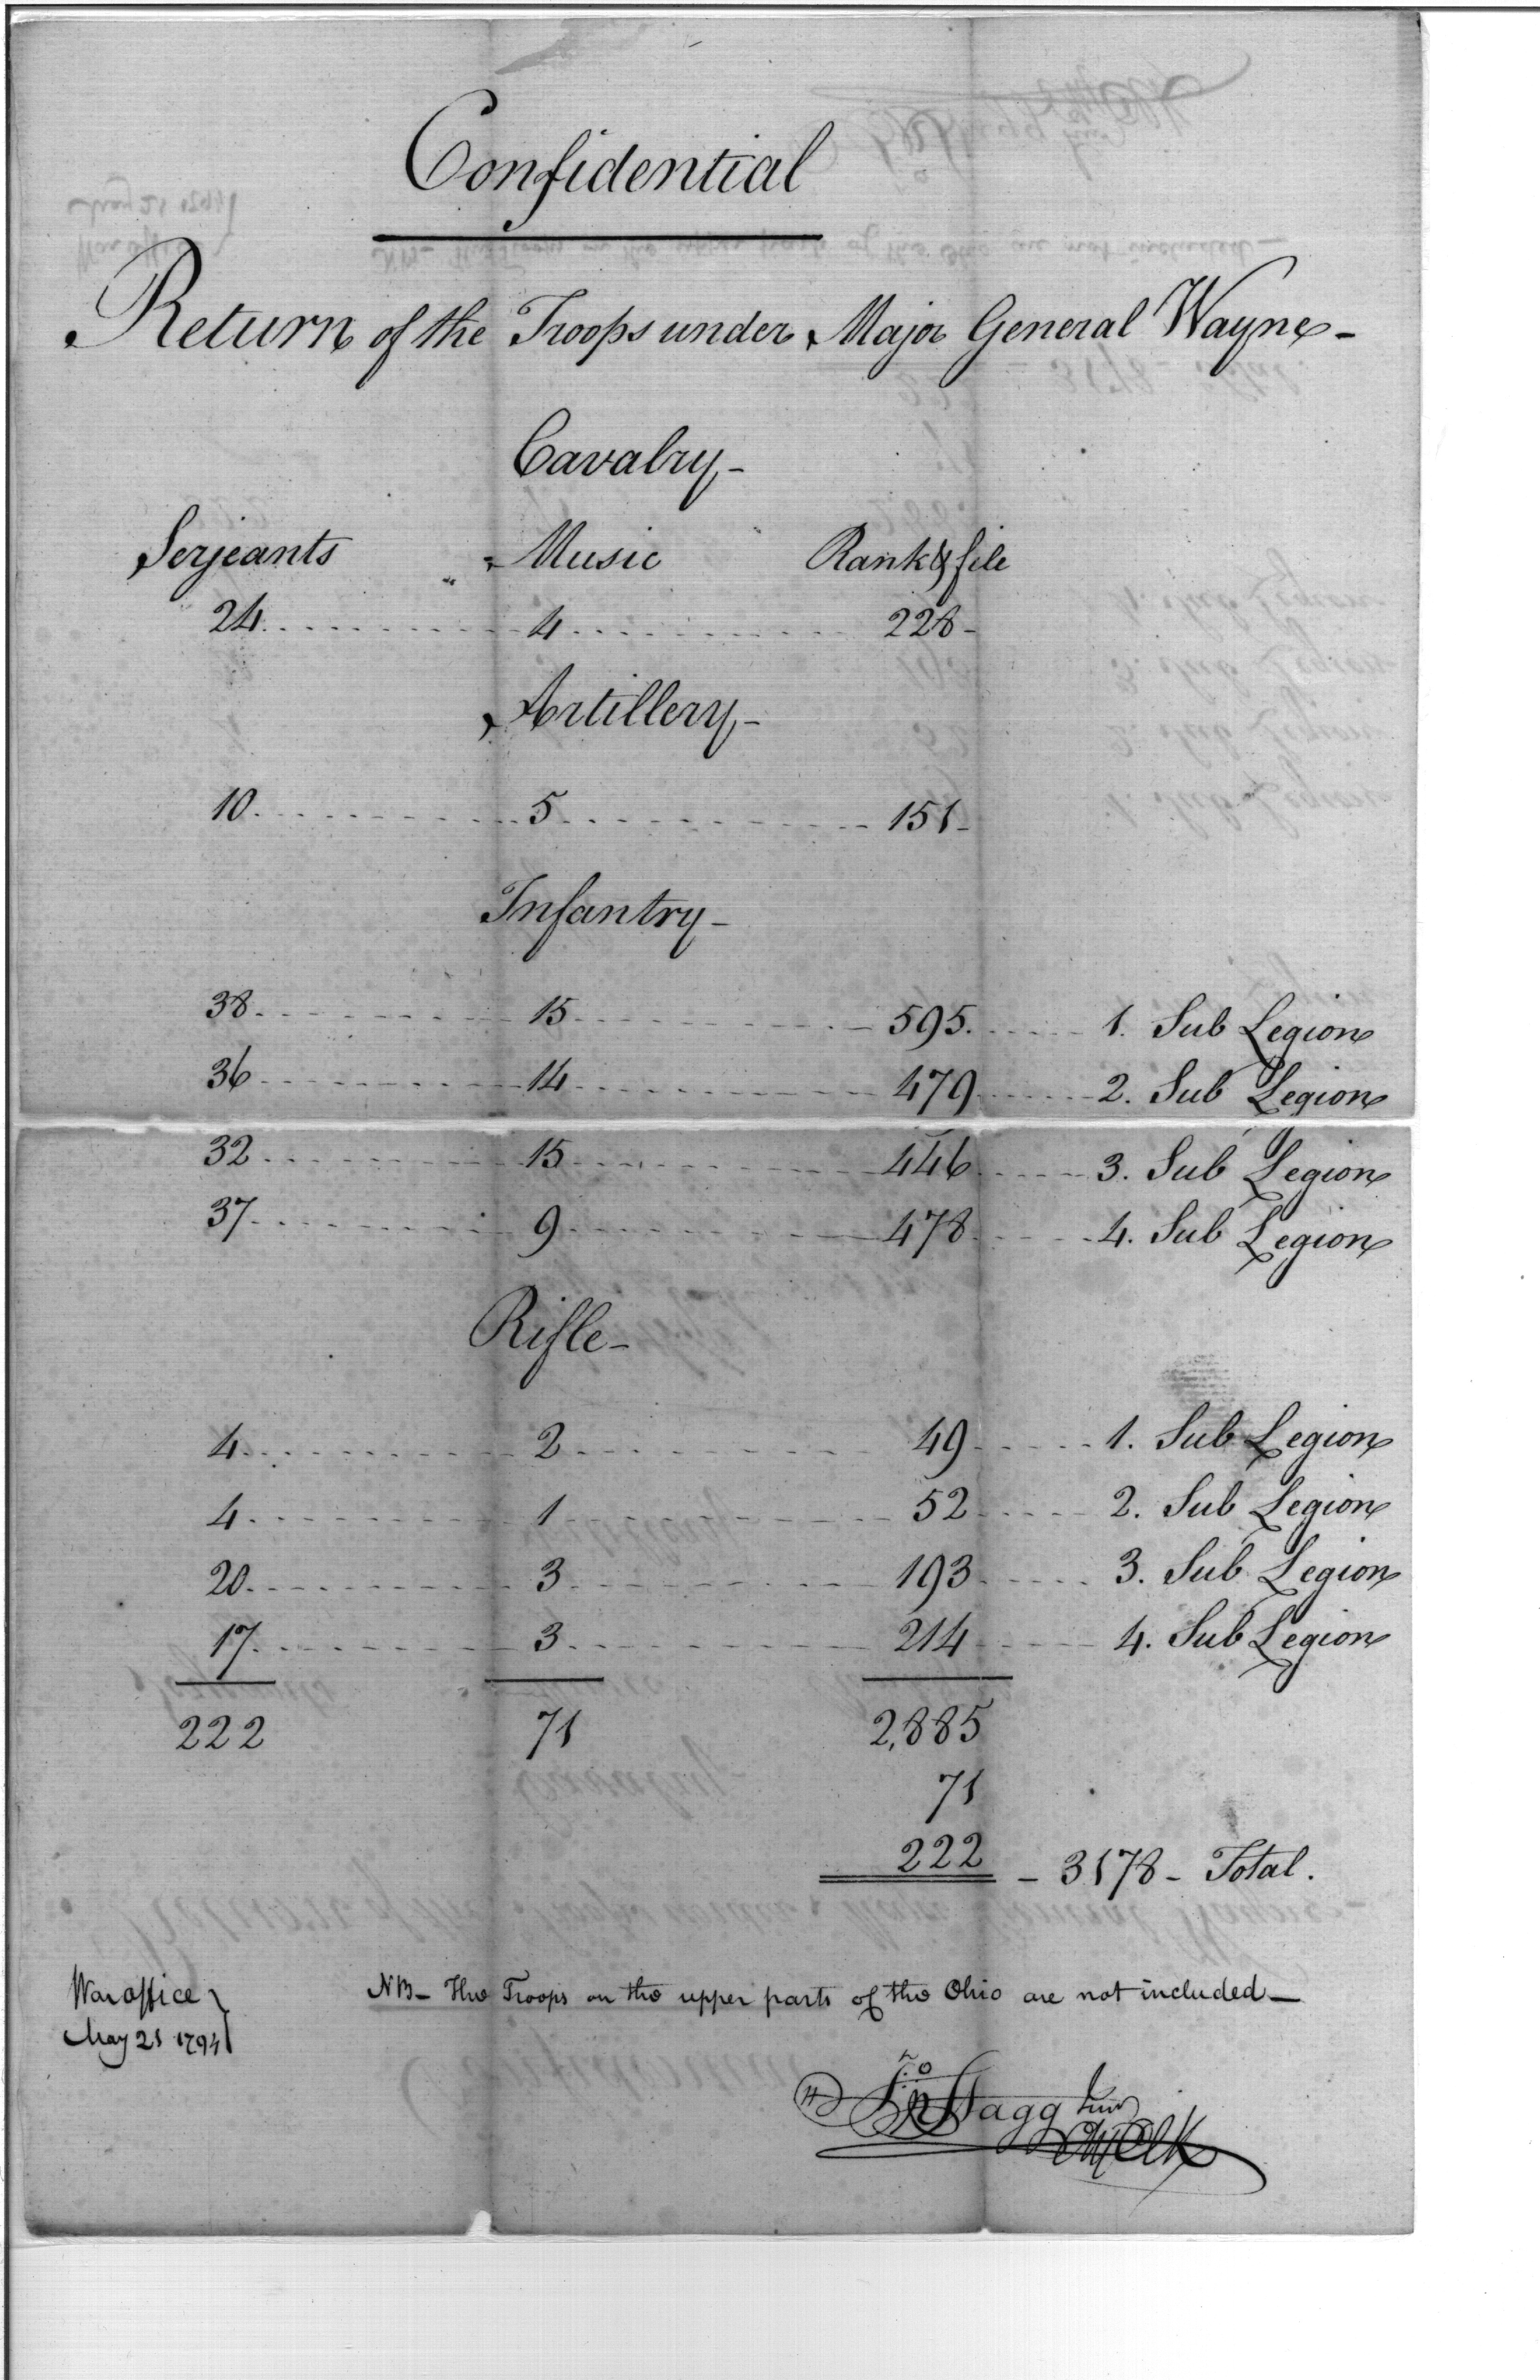 Confidential
Return of the Troops under Major General Wayne -
Cavalry -
Serjeants Music Rank & file
24 4 228 -
Artillery -
10 5 151 -
Infantry -
38 15 595 1. Sub Legion
36 14 479 2. Sub Legion
32 15 446 3. Sub Legion
37 9 478 4. Sub Legion
Rifle -
4 2 49 1. Sub Legion
4 1 52 2. Sub Legion
20 3 193 3. Sub Legion
17 3 214 4. Sub Legion
222 71 2,885
71
222 - 3178 - Total.
War office
May 21 1794
NB - The Troops on the upper parts of the Ohio are not included -
Jno Stagg Junr